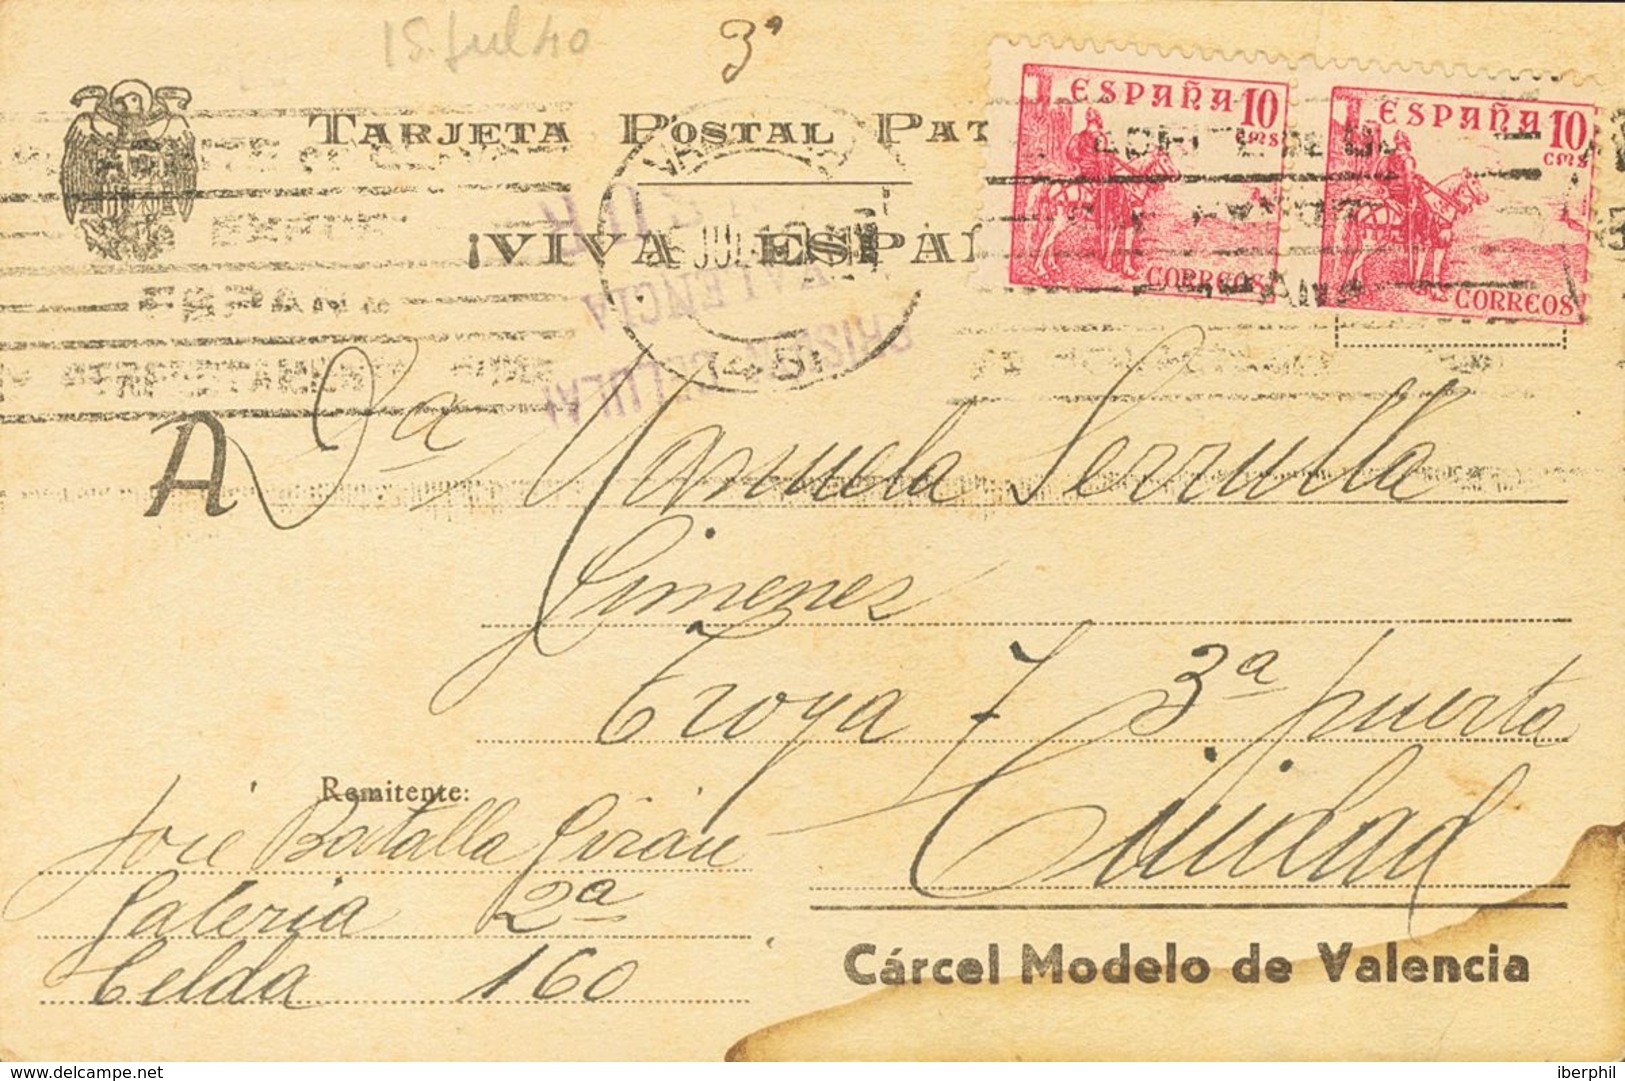 15. Jul 40
3ª
TARJETA POSTAL PAT
¡VIVA ESPAÑ
ESPAÑA 10
CMS
CORREOS
ESPAÑA 10
CMS
CORREOS
JUL
VALENCIA
PRISION CELULAR
A Dª Manuela Serrulla
Gimenez
Troya 7 3ª puerta
Ciudad
Remitente:
José Batalla Girón
Galeria 2ª
Celda 160
Cárcel Modelo de Valencia
www.delcampe.net
iberphil